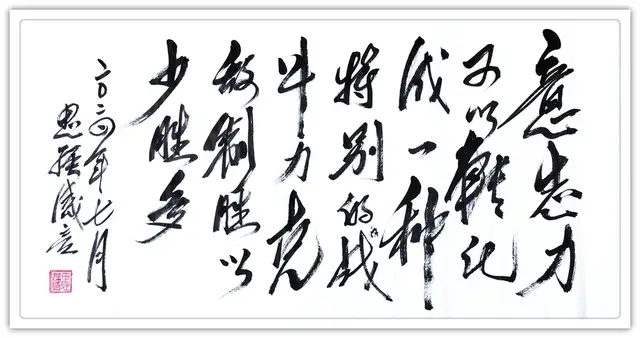 意志力
可以转化
成一种
特别的战
斗力克
敌制胜以
少胜多
二〇二四年七月